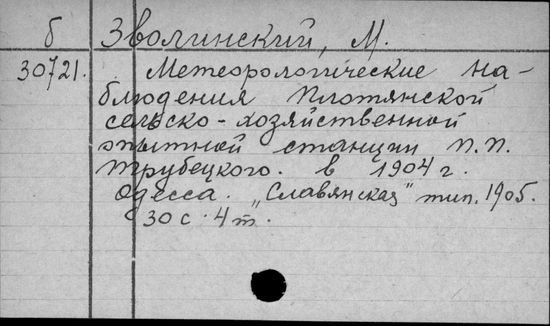 б Зволинский, М.
30721. Метеорологические на-
блюдения Плотянской
сельско-хозяйственной
опытной станции П.П.
Трубецкого. в 1904 г.
Одесса. „Славянская" тип. 1905.
30 с. 4 т.